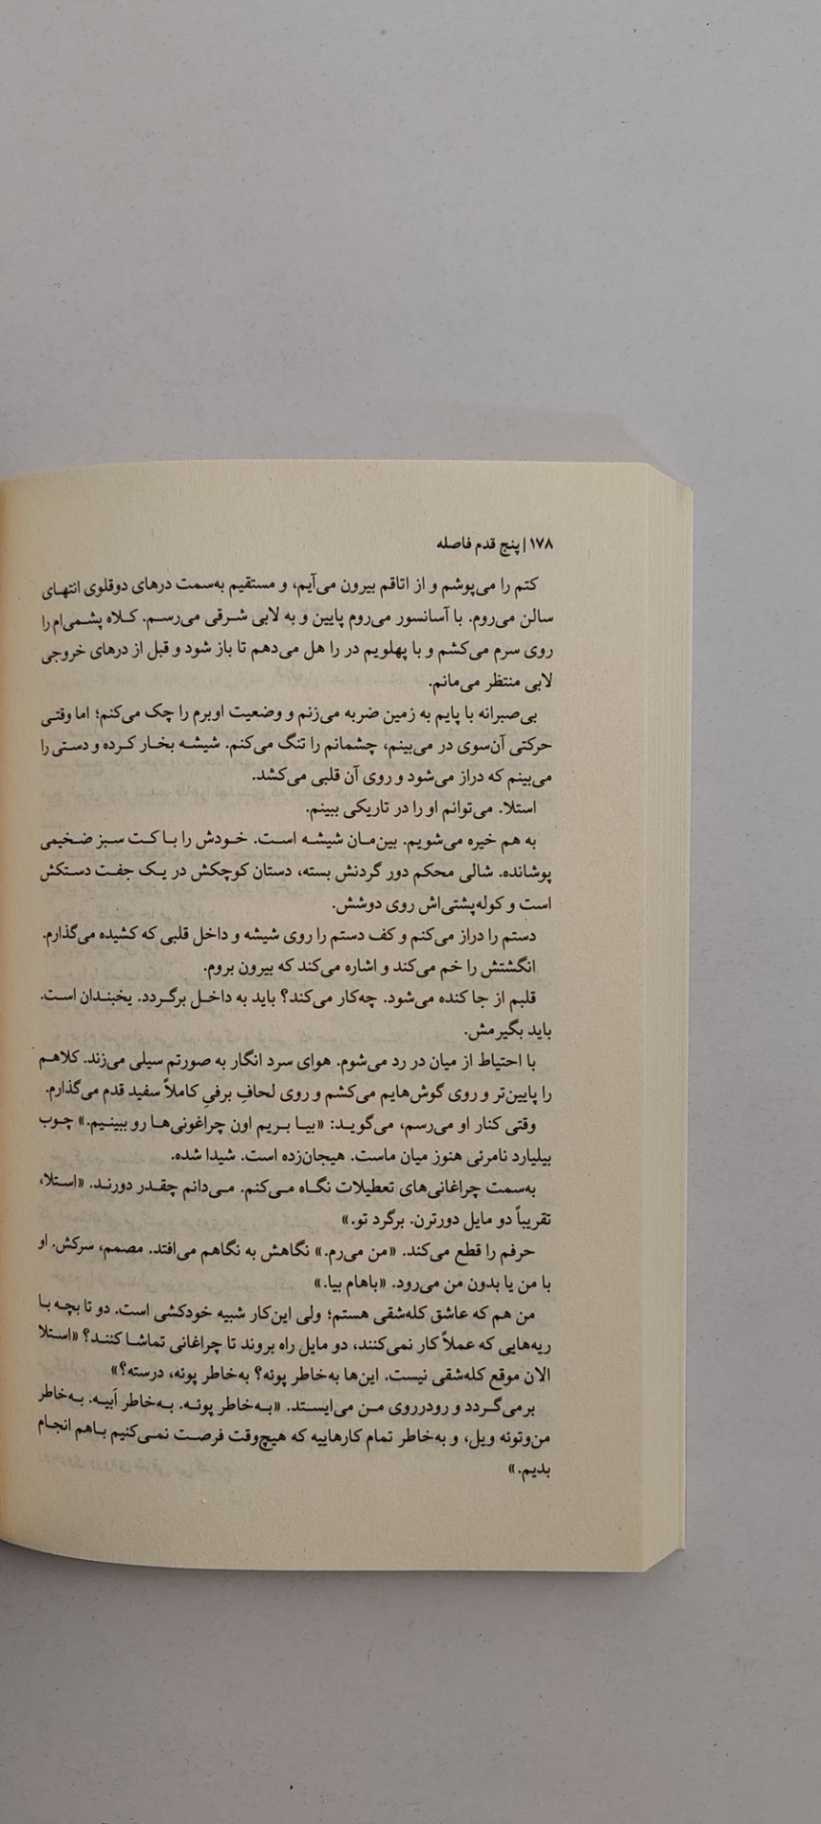 ۱۷۸ | پنج قدم فاصله
کتم را می‌پوشم و از اتاقم بیرون می‌آیم، و مستقیم به‌سمت درهای دوقلوی انتهای
سالن می‌روم. با آسانسور می‌روم پایین و به لابی شرقی می‌رسم. کلاه پشمی‌ام را
روی سرم می‌کشم و با پهلویم در را هل می‌دهم تا باز شود و قبل از درهای خروجی
لابی منتظر می‌مانم.
بی‌صبرانه با پایم به زمین ضربه می‌زنم و وضعیت اوبرم را چک می‌کنم؛ اما وقتی
حرکتی آن‌سوی در می‌بینم، چشمانم را تنگ می‌کنم. شیشه بخار کرده و دستی را
می‌بینم که دراز می‌شود و روی آن قلبی می‌کشد.
استلا. می‌توانم او را در تاریکی ببینم.
به هم خیره می‌شویم. بین‌مان شیشه است. خودش را با کت سبز ضخیمی
پوشانده. شالی محکم دور گردنش بسته، دستان کوچکش در یک جفت دستکش
است و کوله‌پشتی‌اش روی دوشش.
دستم را دراز می‌کنم و کف دستم را روی شیشه و داخل قلبی که کشیده می‌گذارم.
انگشتش را خم می‌کند و اشاره می‌کند که بیرون بروم.
قلبم از جا کنده می‌شود. چه‌کار می‌کند؟ باید به داخل برگردد. یخبندان است.
باید بگیرمش.
با احتیاط از میان در رد می‌شوم. هوای سرد انگار به صورتم سیلی می‌زند. کلاهم
را پایین‌تر و روی گوش‌هایم می‌کشم و روی لحافِ برفیِ کاملاً سفید قدم می‌گذارم.
وقتی کنار او می‌رسم، می‌گوید: «بیا بریم اون چراغونی‌ها رو ببینیم.» چوب
بیلیارد نامرئی هنوز میان ماست. هیجان‌زده است. شیدا شده.
به‌سمت چراغانی‌های تعطیلات نگاه می‌کنم. می‌دانم چقدر دورند. «استلا،
تقریباً دو مایل دورترن. برگرد تو.»
حرفم را قطع می‌کند. «من می‌رم.» نگاهش به نگاهم می‌افتد. مصمم، سرکش. او
با من یا بدون من می‌رود. «باهام بیا.»
من هم که عاشق کله‌شقی هستم؛ ولی این‌کار شبیه خودکشی است. دو تا بچه با
ریه‌هایی که عملاً کار نمی‌کنند، دو مایل راه بروند تا چراغانی تماشا کنند؟ «استلا
الان موقع کله‌شقی نیست. این‌ها به‌خاطر پوئه؟ به‌خاطر پوئه، درسته؟»
برمی‌گردد و رودرروی من می‌ایستد. «به‌خاطر پوئه. به‌خاطر اَبیه. به‌خاطر
من‌وتوئه ویل، و به‌خاطر تمام کارهاییه که هیچ‌وقت فرصت نمی‌کنیم باهم انجام
بدیم.»